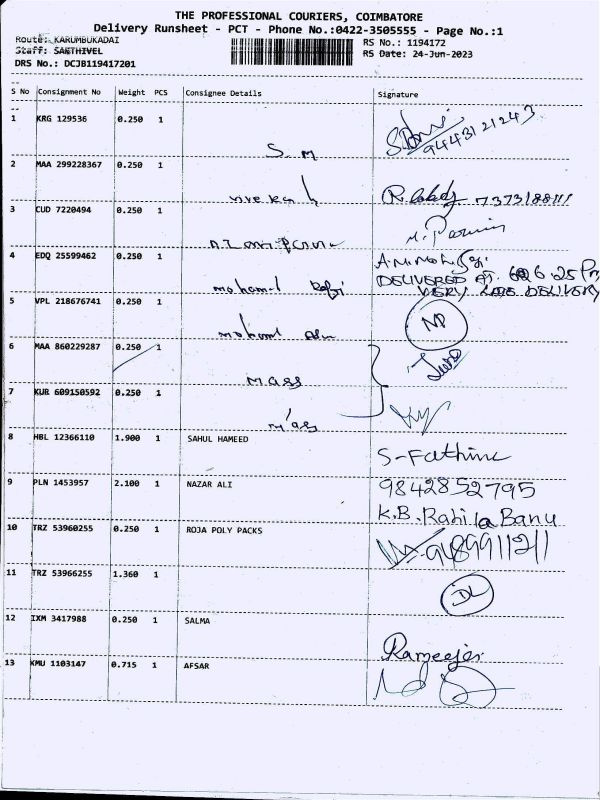 THE PROFESSIONAL COURIERS, COIMBATORE
Delivery Runsheet - PCT - Phone No.:0422-3505555 - Page No.:1
Route: KARUMBUKADAI RS No.: 1194172
Staff: SAKTHIVEL RS Date: 24-Jun-2023
DRS No.: DCJB119417201
S No Consignment No Weight PCS Consignee Details Signature
1 KRG 129536 0.250 1 9443121243
S. M
2 MAA 299228367 0.250 1 7373188111
vivekah
3 CUD 7220494 0.250 1
4 EDQ 25599462 0.250 1
DELIVERED AT 6.25 Pm
VERY LATE DELIVERY
5 VPL 218676741 0.250 1 NP
6 MAA 860229287 0.250 1
mass
7 KUR 609150592 0.250 1
mas
8 HBL 12366110 1.900 1 SAHUL HAMEED S-Fathima
9 PLN 1453957 2.100 1 NAZAR ALI 9842852795
K.B. Rahila Banu
10 TRZ 53960255 0.250 1 ROJA POLY PACKS 9489911211
11 TRZ 53966255 1.360 1 DL
12 IXM 3417988 0.250 1 SALMA Rameeja
13 KMU 1103147 0.715 1 AFSAR